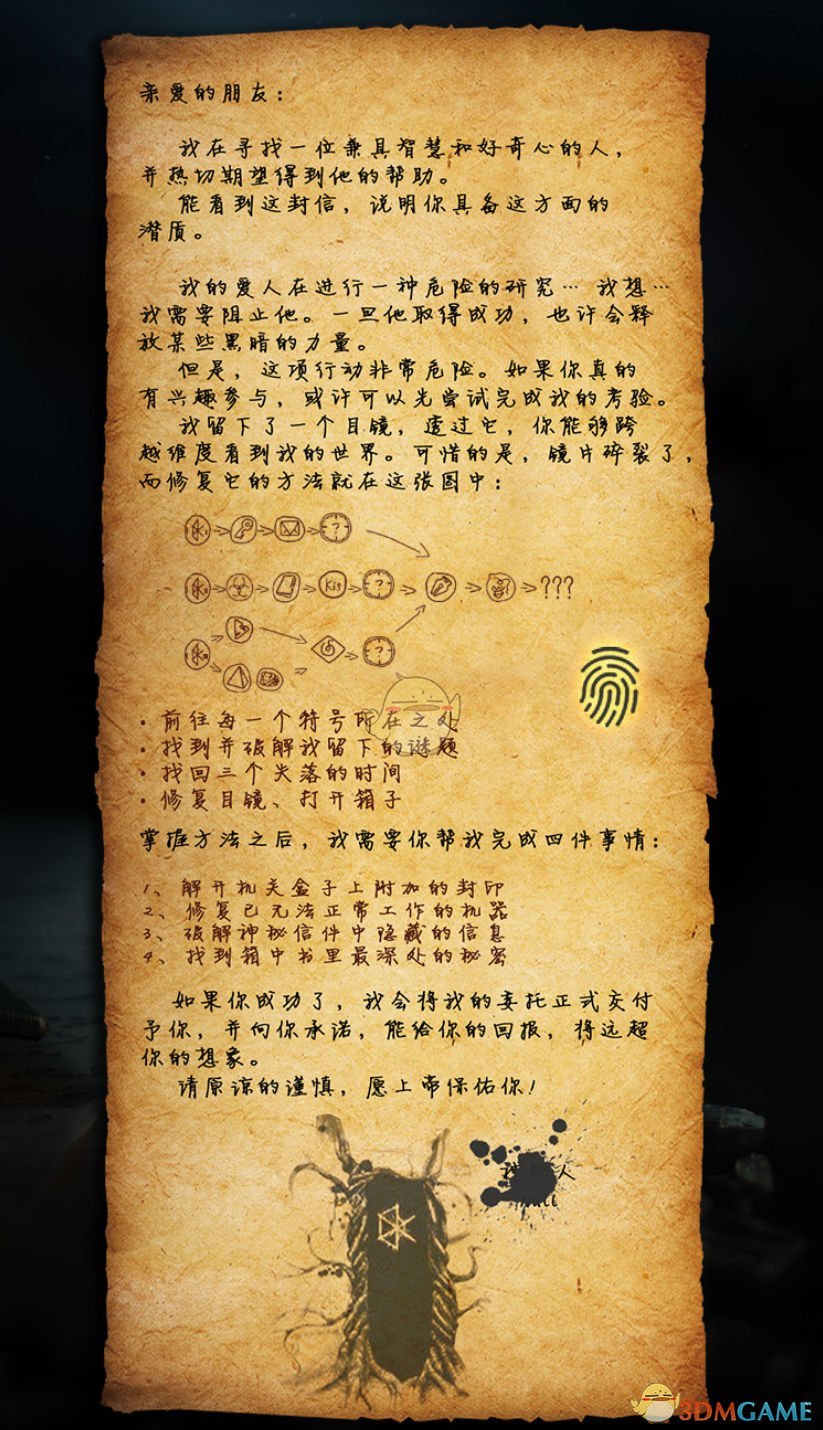 亲爱的朋友：
我在寻找一位兼具智慧和好奇心的人，
并热切期望得到他的帮助。
能看到这封信，说明你具备这方面的
潜质。
我的爱人在进行一种危险的研究… 我想…
我需要阻止他。一旦他取得成功，也许会释
放某些黑暗的力量。
但是，这项行动非常危险。如果你真的
有兴趣参与，或许可以先尝试完成我的考验。
我留下了一个目镜，透过它，你能够跨
越维度看到我的世界。可惜的是，镜片碎裂了，
而修复它的方法就在这张图中：
?
Kis
?
???
?
· 前往每一个符号所在之处
· 找到并破解我留下的谜题
· 找回三个失落的时间
· 修复目镜、打开箱子
掌握方法之后，我需要你帮我完成四件事情：
1、解开机关盒子上附加的封印
2、修复已无法正常工作的机器
3、破解神秘信件中隐藏的信息
4、找到箱中书里最深处的秘密
如果你成功了，我会将我的委托正式交付
予你，并向你承诺，能给你的回报，将远超
你的想象。
请原谅的谨慎，愿上帝保佑你！
人
3DMGAME